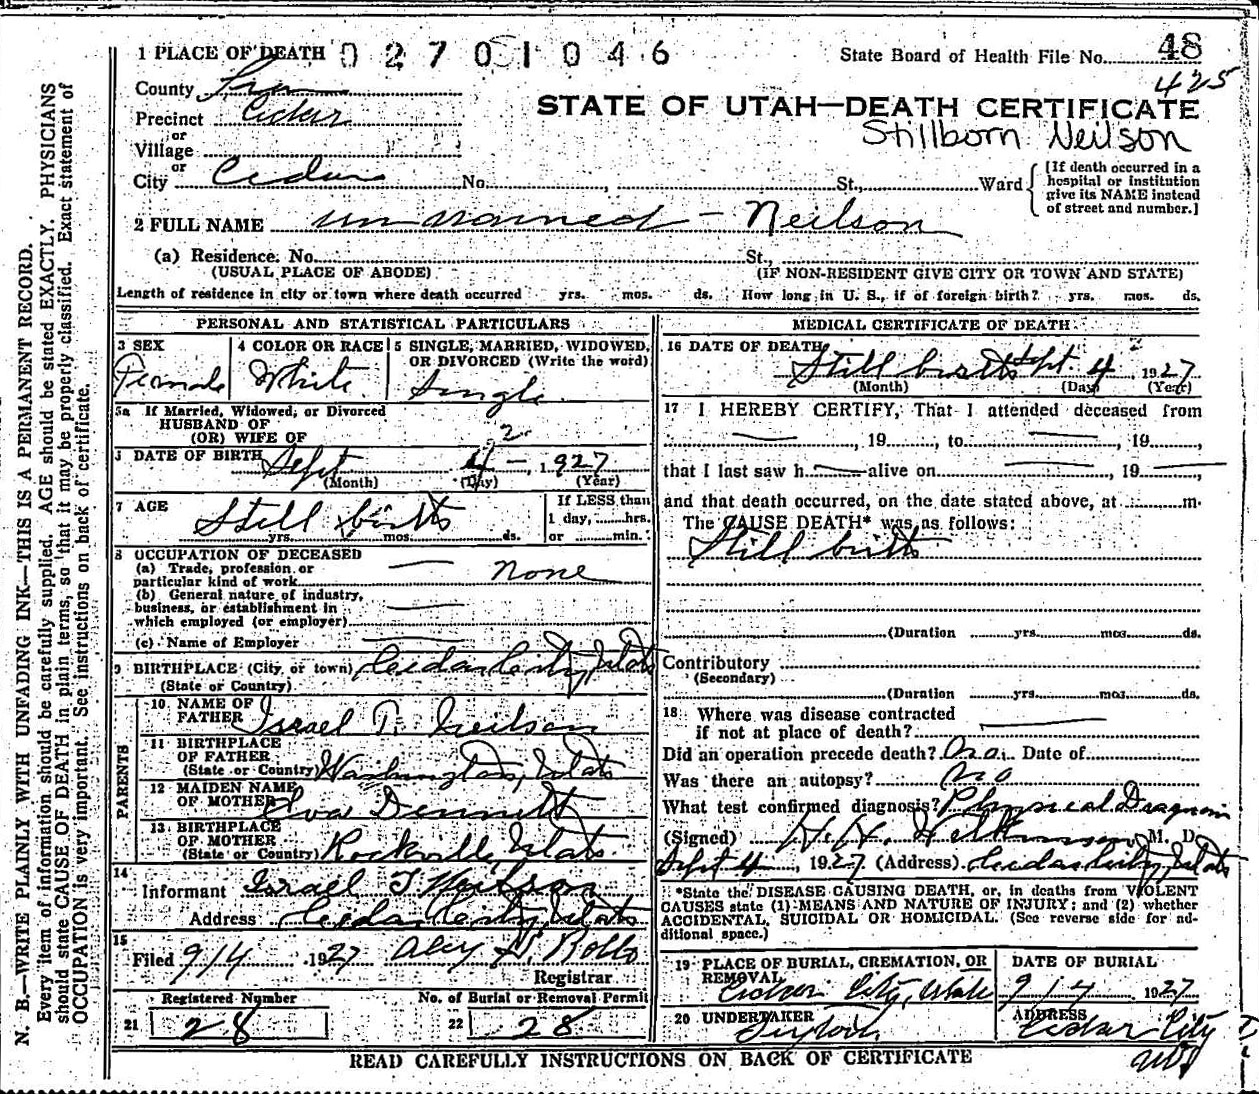 1 PLACE OF DEATH 02701046
State Board of Health File No. 48
425
County Iron
STATE OF UTAH—DEATH CERTIFICATE
Precinct Cedar
Stillborn Neilson
or
Village
or
City Cedar No. , St., Ward
[If death occurred in a
hospital or institution
give its NAME instead
of street and number.]
2 FULL NAME un named - Neilson
(a) Residence. No. St.,
(USUAL PLACE OF ABODE) (IF NON-RESIDENT GIVE CITY OR TOWN AND STATE)
Length of residence in city or town where death occurred yrs. mos. ds. How long in U. S., if of foreign birth? yrs. mos. ds.
PERSONAL AND STATISTICAL PARTICULARS
3 SEX
Female
4 COLOR OR RACE
White
5 SINGLE, MARRIED, WIDOWED,
OR DIVORCED (Write the word)
Single
5a If Married, Widowed, or Divorced
HUSBAND OF
(OR) WIFE OF
2
DATE OF BIRTH Sept 4 - 1927
(Month) (Day) (Year)
7 AGE
Still birth
yrs. mos. ds.
If LESS than
1 day, hrs.
or min.
8 OCCUPATION OF DECEASED
(a) Trade, profession, or
particular kind of work — none
(b) General nature of industry,
business, or establishment in
which employed (or employer)
(c) Name of Employer
9 BIRTHPLACE (City, or town) Cedar City, Utah
(State or Country)
PARENTS
10 NAME OF
FATHER Israel T. Neilson
11 BIRTHPLACE
OF FATHER
(State or Country) Washington, Utah
12 MAIDEN NAME
OF MOTHER Eva Dennett
13 BIRTHPLACE
OF MOTHER
(State or Country) Rockville, Utah
14
Informant Israel T Neilson
Address Cedar City, Utah
15
Filed 9/4 1927
Registrar
Registered Number
21 28
No. of Burial or Removal Permit
22 28
MEDICAL CERTIFICATE OF DEATH
16 DATE OF DEATH
Still birth Sept 4 1927
(Month) (Day) (Year)
17 I HEREBY CERTIFY, That I attended deceased from
— , 19 , to — , 19 ,
that I last saw h — alive on — , 19 —
and that death occurred, on the date stated above, at m.
The CAUSE DEATH* was as follows:
Still birth
(Duration yrs. mos. ds.
Contributory
(Secondary)
(Duration yrs. mos. ds.
18 Where was disease contracted
if not at place of death? —
Did an operation precede death? No. Date of
Was there an autopsy? No
What test confirmed diagnosis? Physical Diagnosis
(Signed) M. D.
Sept 4, 1927 (Address) Cedar City, Utah
*State the DISEASE CAUSING DEATH, or, in deaths from VIOLENT
CAUSES state (1) MEANS AND NATURE OF INJURY; and (2) whether
ACCIDENTAL, SUICIDAL OR HOMICIDAL. (See reverse side for ad-
ditional space.)
19 PLACE OF BURIAL, CREMATION, OR
REMOVAL
Cedar City, Utah
DATE OF BURIAL
9/4 1927
20 UNDERTAKER
ADDRESS
Cedar City
READ CAREFULLY INSTRUCTIONS ON BACK OF CERTIFICATE
N. B.—WRITE PLAINLY WITH UNFADING INK—THIS IS A PERMANENT RECORD.
Every item of information should be carefully supplied. AGE should be stated EXACTLY. PHYSICIANS
should state CAUSE OF DEATH in plain terms, so that it may be properly classified. Exact statement of
OCCUPATION is very important. See instructions on back of certificate.